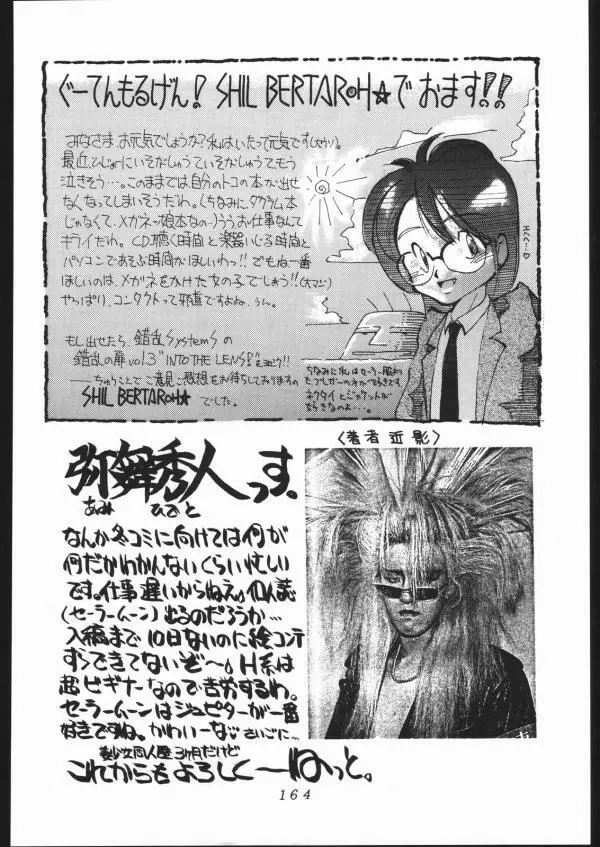 ぐーてんもるげん! SHIL BERTAROH☆でおます!!
みなさま お元気でしょうか?私はいたって元気です(大ウソ)。
最近、ひじょーにいそがしゅうていそがしゅうて、もう
泣きそう…。このままでは自分のトコの本が出せ
なくなってしまいそうだわ。(ちなみに、タカラヅカ本
じゃなくて、メガネっ娘本なの)ううお仕事なんて
キライだわ。CD聴く時間と楽器いじる時間と
パソコンであそぶ時間がほしいわっ!!でもね一番
ほしいのは、メガネをかけた女の子でしょう!!(大マジ)
やっぱり、コンタクトって邪道ですよね、うん。
もし出せたら、錯乱SystemSの
錯乱の扉 vol.3 "INTO THE LENS"をヨロシク!!
——ちゅうことでご意見ご感想をお待ちしておりますの
SHIL BERTAROH☆でした。
エヘヘ…♡
ちなみに私はセーラー服より
もブレザーの方が好きです
ネクタイとジャケットが
好きなのよ…。
弥舞秀人っす。
あみ ひでと
〈著者近影〉
なんか冬コミに向けては何が
何だかわかんないくらい忙しい
です。仕事遅いからねえ。個人誌
(セーラームーン)出るのだろうか…
入稿まで10日ないのに絵コンテ
すらできてないぞ〜。H系は
超ビギナーなので苦労するわ。
セーラームーンはジュピターが一番
好きですね。かわいーな。さいごに…
美少女同人歴3ヶ月だけど
これからもよろしく〜ねっと。
164